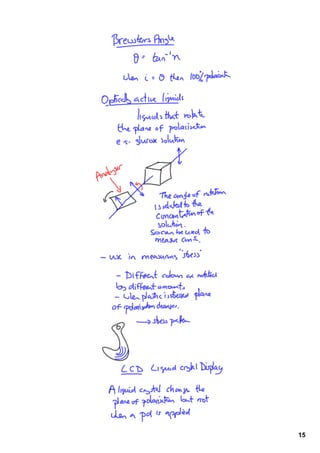 Brewsters Angle
θ = tan⁻¹n
when i = θ then 100% polarisatn
Optically active liquids
liquids that rotate
the plane of polarisation
e.g. glucose solution
Analyser
The angle of rotation
is related to the
Concentration of the
solution.
So can be used to
measure conc.
- use in measuring "stress"
- Different colours are rotated
by different amounts.
- when plastic is stressed plane
of polarisation changes.
→ stress patter
LCD Liquid crystal Display
A liquid crystal change the
plane of polarisation but not
when a pd is applied
15